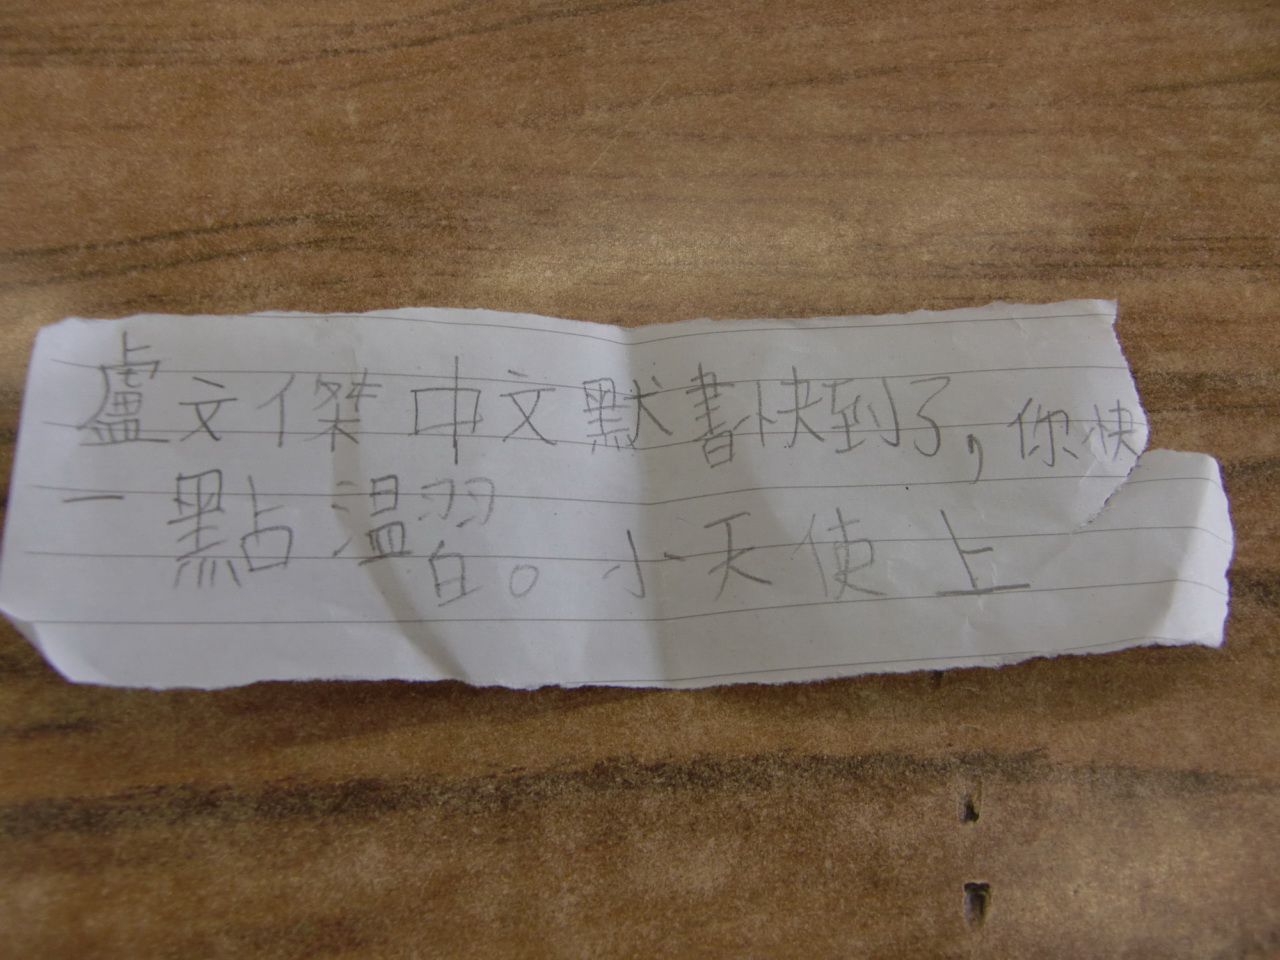 盧文傑中文默書快到了,你快
一點温習。小天使上